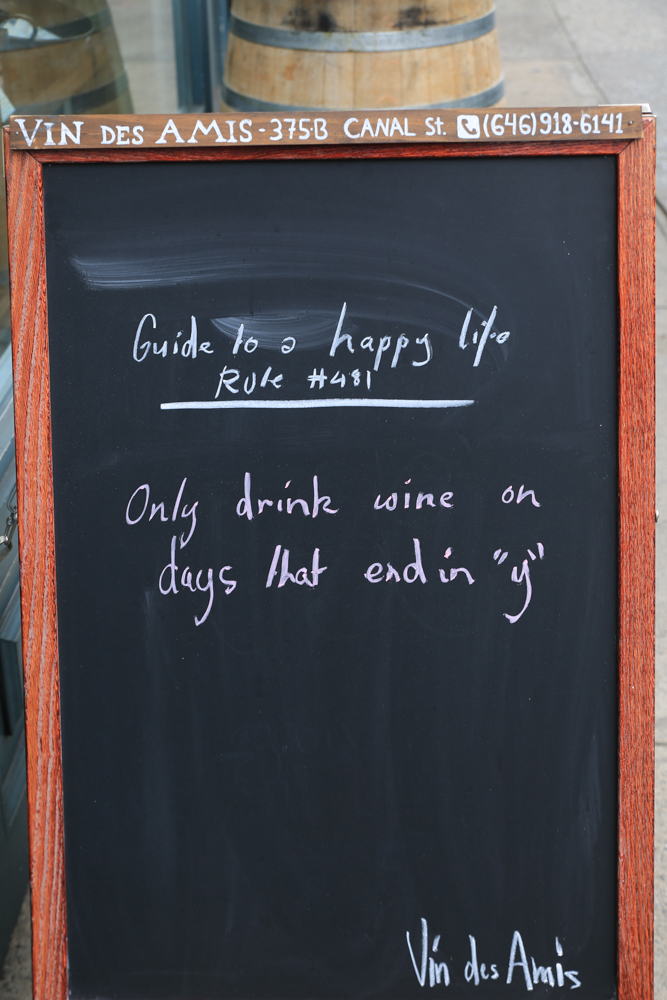 VIN DES AMIS - 375B CANAL St. (646)918-6141
Guide to a happy life
Rule #481
Only drink wine on
days that end in "y"
Vin des Amis